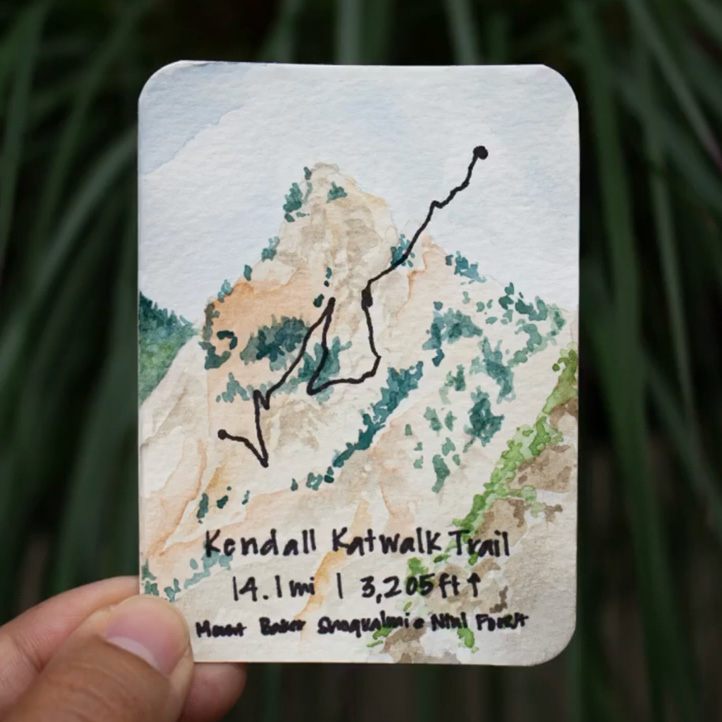 Kendall Katwalk Trail
14.1mi | 3,205ft↑
Mount Baker Snoqualmie Ntnl Forest